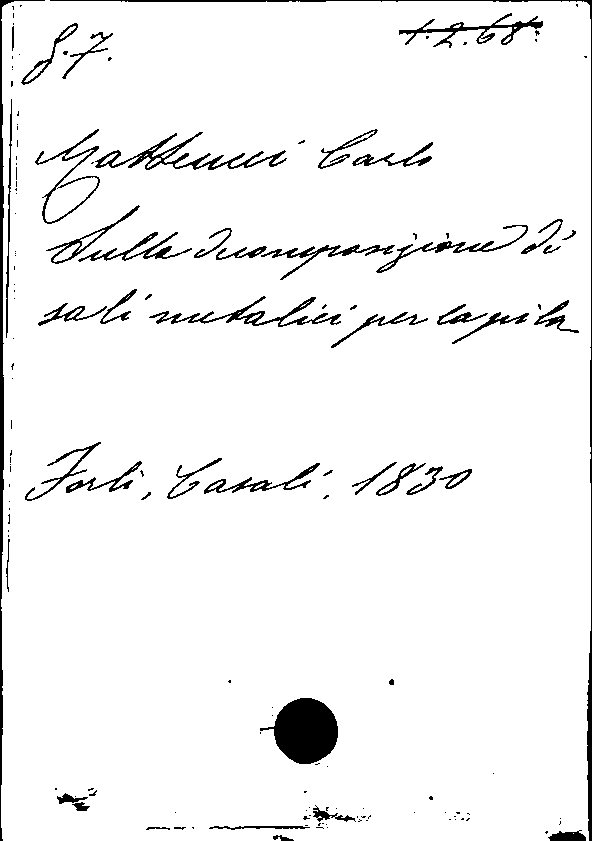 8.7.
1.2.68
Matteucci Carlo
Sulla decomposizione di
sali metalici per la pila
Forlì, Casali, 1830